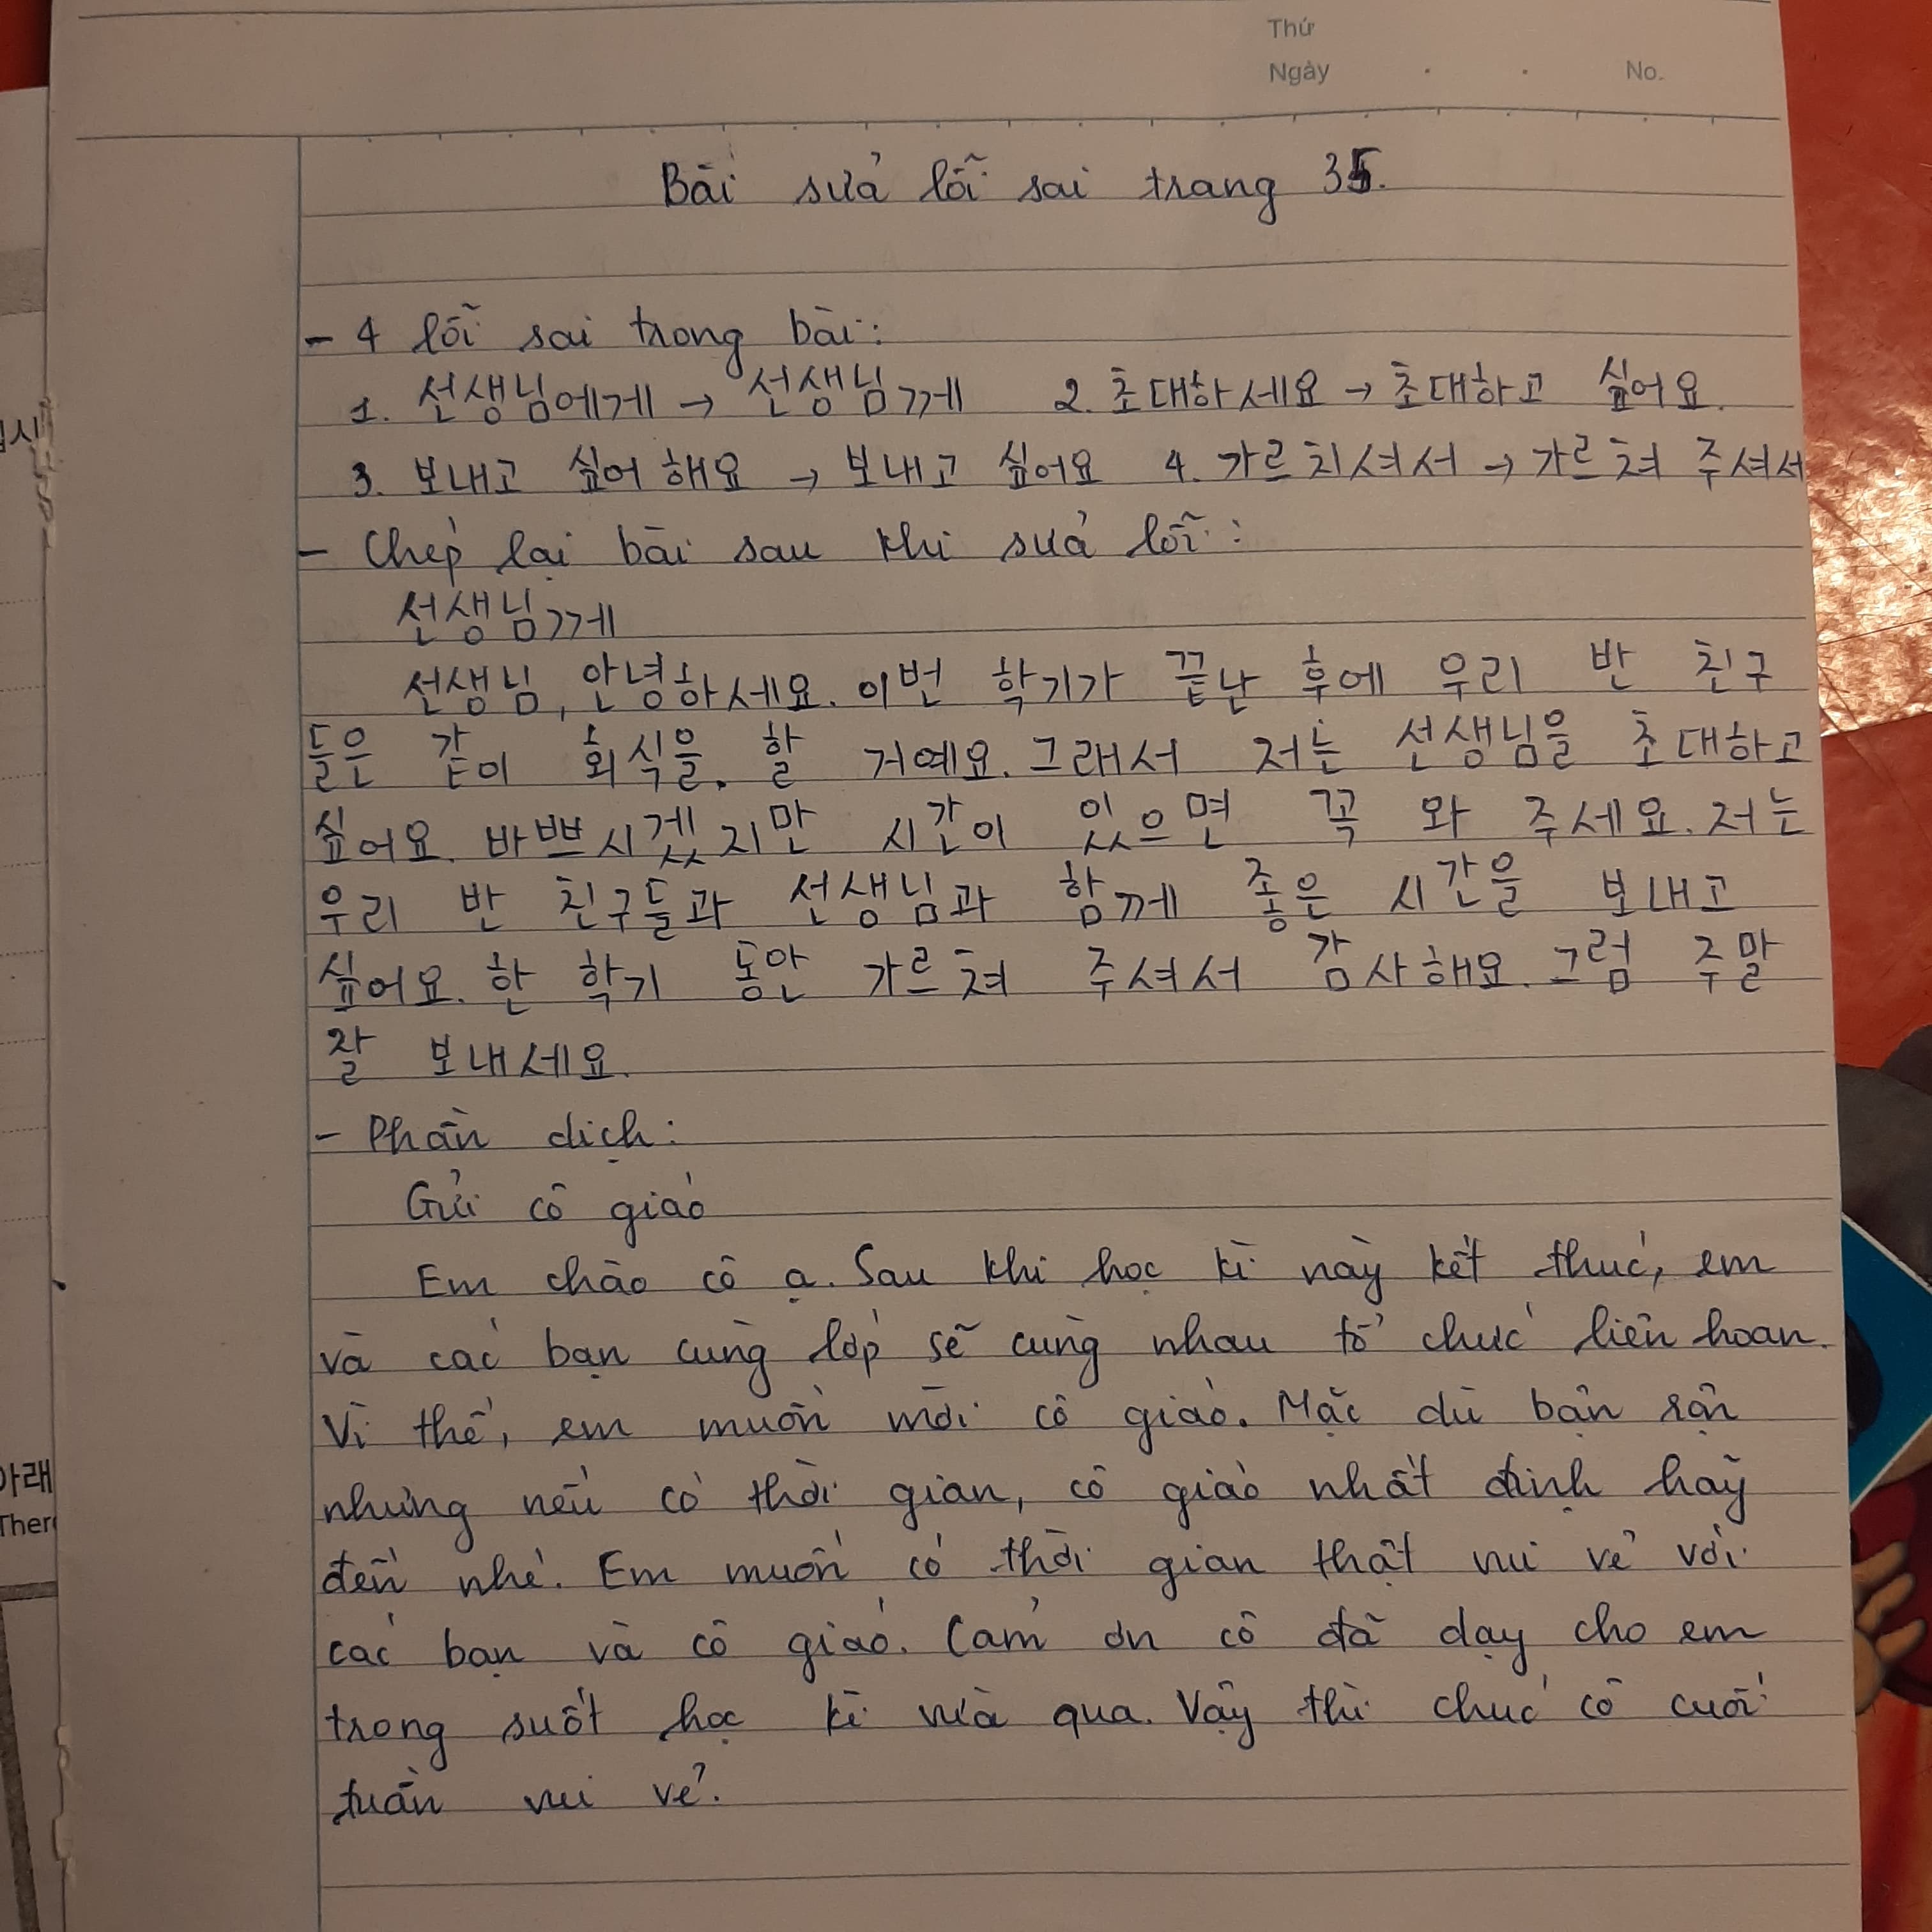 Thứ
Ngày . . No.
Bài sửa lỗi sai trang 35.
- 4 lỗi sai trong bài:
1. 선생님에게 → 선생님께 2. 초대하세요 → 초대하고 싶어요.
3. 보내고 싶어 해요 → 보내고 싶어요 4. 가르치셔서 → 가르쳐 주셔서
- Chép lại bài sau khi sửa lỗi:
선생님께
선생님, 안녕하세요. 이번 학기가 끝난 후에 우리 반 친구
들은 같이 회식을. 할 거예요. 그래서 저는 선생님을 초대하고
싶어요. 바쁘시겠지만 시간이 있으면 꼭 와 주세요. 저는
우리 반 친구들과 선생님과 함께 좋은 시간을 보내고
싶어요. 한 학기 동안 가르쳐 주셔서 감사해요. 그럼 주말
잘 보내세요.
- Phần dịch:
Gửi cô giáo
Em chào cô ạ. Sau khi học kì này kết thúc, em
và các bạn cùng lớp sẽ cùng nhau tổ chức liên hoan.
Vì thế, em muốn mời cô giáo. Mặc dù bận rộn
nhưng nếu có thời gian, cô giáo nhất định hãy
đến nhé. Em muốn có thời gian thật vui vẻ với
các bạn và cô giáo. Cảm ơn cô đã dạy cho em
trong suốt học kì vừa qua. Vậy thì chúc cô cuối
tuần vui vẻ.
십시
아래
Ther